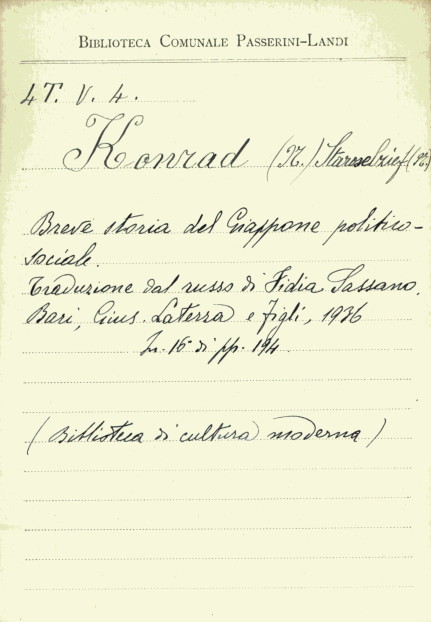 BIBLIOTECA COMUNALE PASSERINI-LANDI
4 T. V. 4.
Konrad (N.)
Breve storia del Giappone politico-
sociale.
Traduzione dal russo di Fidia Sassano.
Bari, Gius. Laterza e figli, 1936
In. 16° di pp. 194
(Biblioteca di cultura moderna)